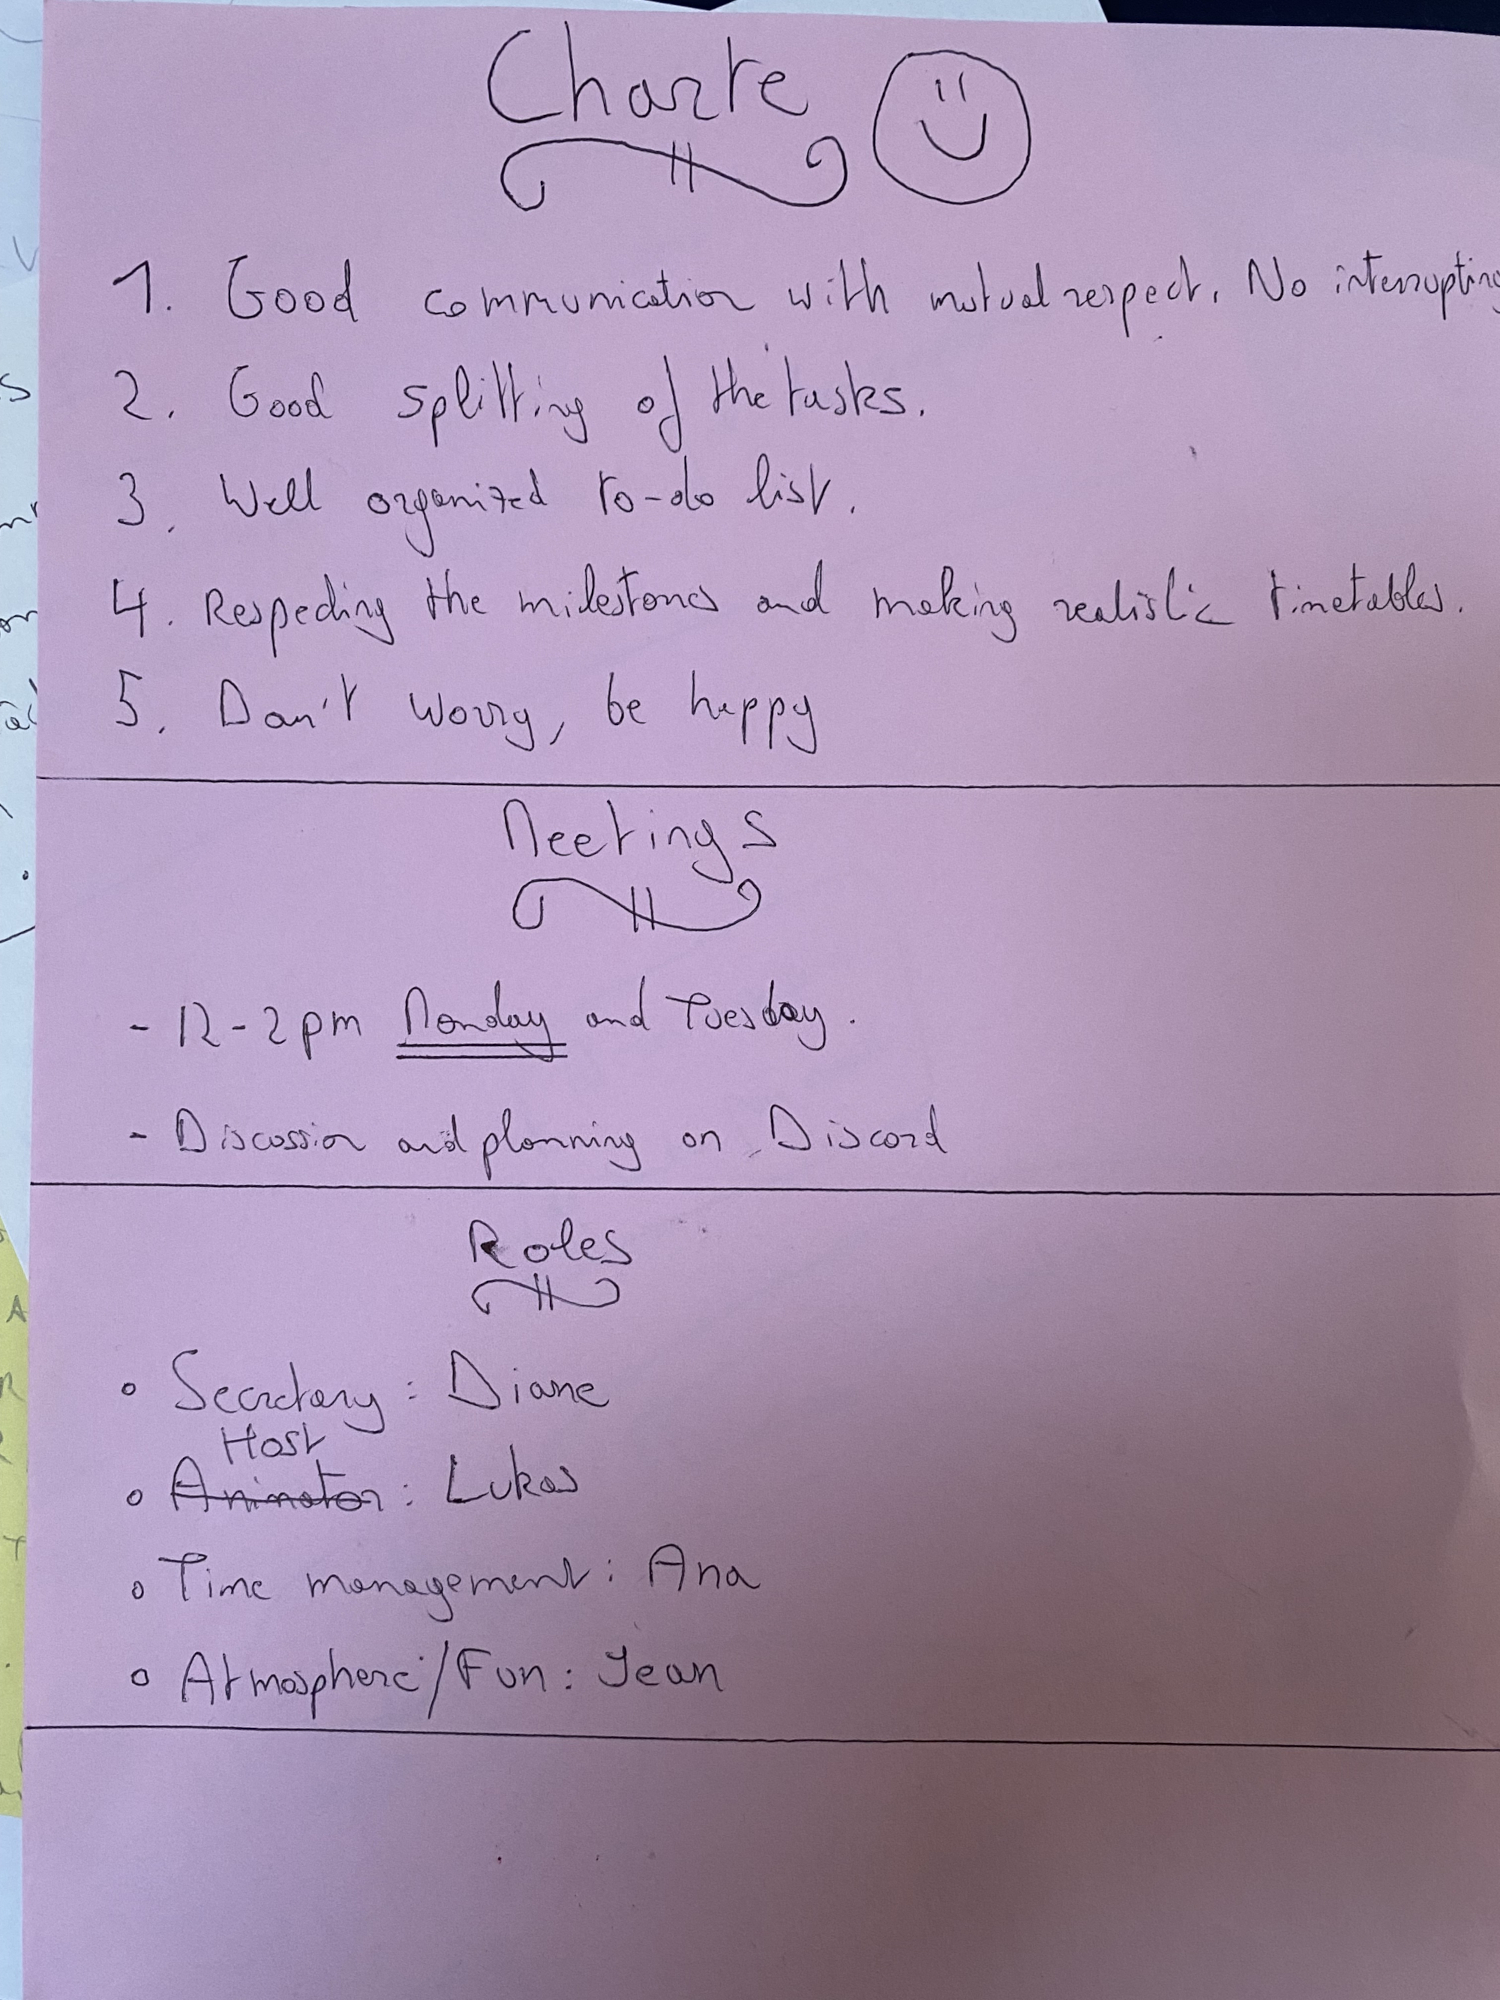 Charte
1. Good communication with mutual respect. No interrupting
2. Good splitting of the tasks.
3. Well organized to-do list.
4. Respecting the milestones and making realistic timetables.
5. Don't worry, be happy
Meetings
- 12-2pm Monday and Tuesday.
- Discussion and planning on Discord
Roles
• Secretary: Diane
Host
• Animator: Lukas
• Time management: Ana
• Atmosphere/Fun: Jean